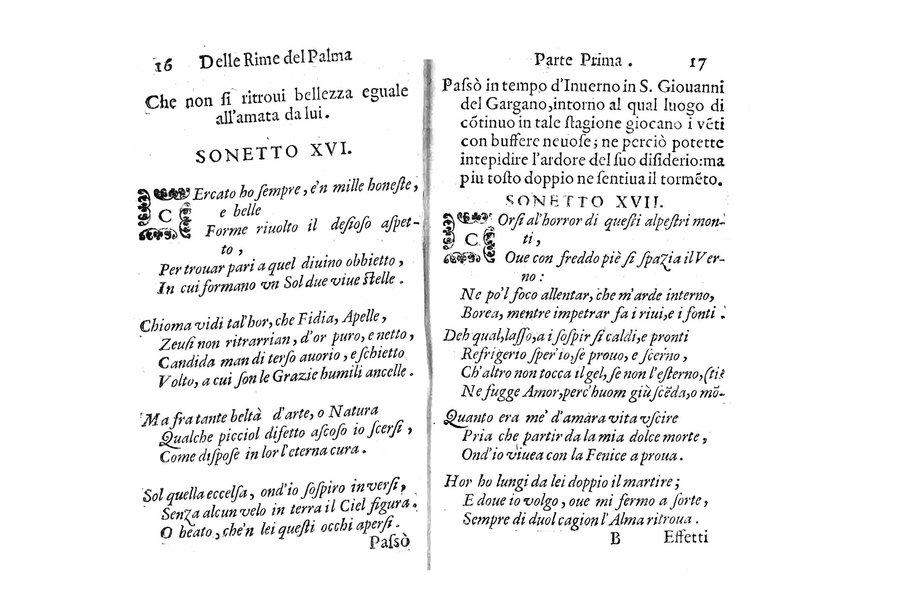 16 Delle Rime del Palma
Che non ſi ritroui bellezza eguale
all'amata da lui.
SONETTO XVI.
CErcato ho ſempre, e'n mille honeſte,
e belle
Forme riuolto il deſioſo aſpet-
to,
Per trouar pari a quel diuino obbietto,
In cui formano vn Sol due viue ſtelle.
Chioma vidi tal'hor, che Fidia, Apelle,
Zeuſi non ritrarrian, d'or puro, e netto,
Candida man di terſo auorio, e ſchietto
Volto, a cui ſon le Grazie humili ancelle.
Ma fra tante beltà d'arte, o Natura
Qualche picciol difetto aſcoſo io ſcerſi,
Come diſpoſe in lor l'eterna cura.
Sol quella eccelſa, ond'io ſoſpiro in verſi,
Senza alcun velo in terra il Ciel figura.
O beato, che'n lei queſti occhi aperſi.
Paſsò
Parte Prima. 17
Paſsò in tempo d'Inuerno in S. Giouanni
del Gargano, intorno al qual luogo di
cõtinuo in tale ſtagione giocano i vẽti
con buffere neuoſe; ne perciò potette
intepidire l'ardore del ſuo diſiderio: ma
piu toſto doppio ne ſentiua il tormẽto.
SONETTO XVII.
COrſi al'horror di queſti alpeſtri mon-
ti,
Oue con freddo piè ſi ſpazia il Ver-
no:
Ne po'l foco allentar, che m'arde interno,
Borea, mentre impetrar fa i riui, e i fonti.
Deh qual, laſſo, a i ſoſpir ſi caldi, e pronti
Refrigerio ſper'io, ſe prouo, e ſcerno,
Ch'altro non tocca il gel, ſe non l'eſterno, (ti?
Ne fugge Amor, perc'huom giù ſcẽda, o mõ-
Quanto era me' d'amara vita vſcire
Pria che partir da la mia dolce morte,
Ond'io viuea con la Fenice a proua.
Hor ho lungi da lei doppio il martire;
E doue io volgo, oue mi fermo a ſorte,
Sempre di duol cagion l'Alma ritroua.
B Effetti